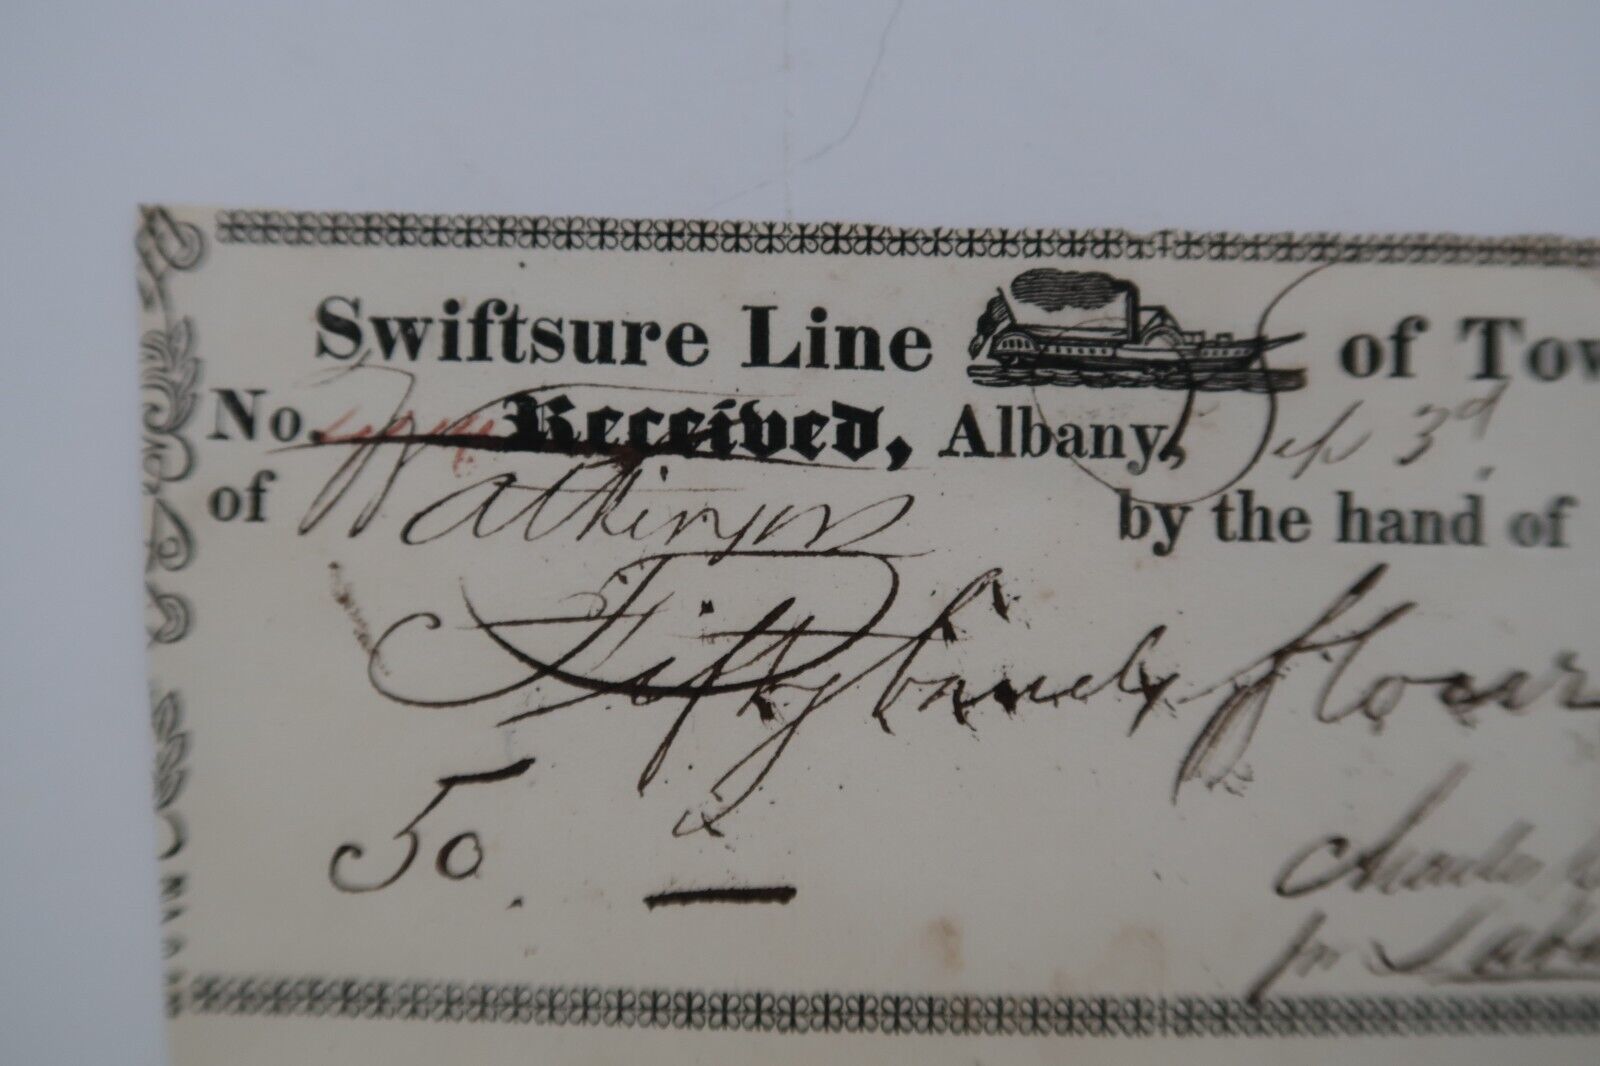 Swiftsure Line of Tow
No. Received, Albany, Sep 3d
of Watkinson by the hand of
Fifty barrels flour
50
Charles
pr